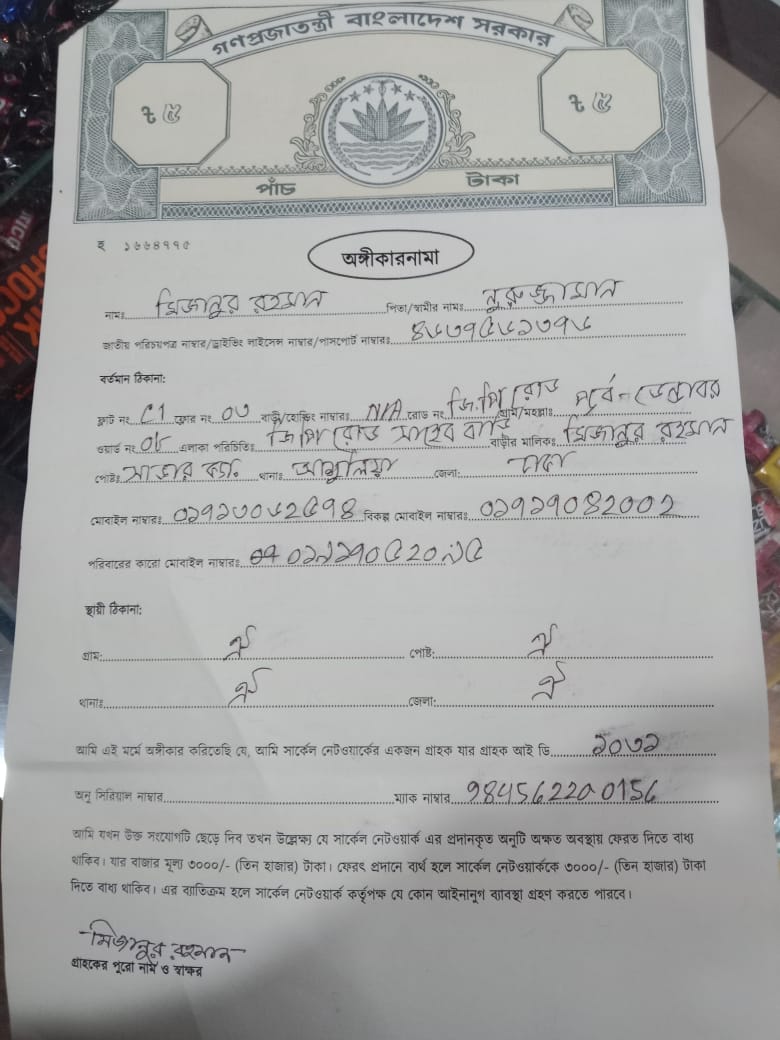 গণপ্রজাতন্ত্রী বাংলাদেশ সরকার
৳ ৫ ৳ ৫
পাঁচ টাকা
ই ১৬৬৪৭৭৫
অঙ্গীকারনামা
নামঃ মিজানুর রহমান পিতা/স্বামীর নামঃ নুরুজ্জামান
জাতীয় পরিচয়পত্র নাম্বার/ড্রাইভিং লাইসেন্স নাম্বার/পাসপোর্ট নাম্বারঃ
বর্তমান ঠিকানা:
ফ্লাট নং C1 ফ্লোর নং ০৩ বাড়ী/হোল্ডিং নাম্বারঃ N/A রোড নং জি.পি রোড গ্রাম/মহল্লাঃ পূর্ব-ডেন্ডাবর
ওয়ার্ড নং ০৮ এলাকা পরিচিতিঃ জি পি রোড সাহেব বাড়ি বাড়ীর মালিকঃ মিজানুর রহমান
পোষ্টঃ সাভার ক্যা. থানাঃ আশুলিয়া জেলা: ঢাকা
মোবাইল নাম্বারঃ বিকল্প মোবাইল নাম্বারঃ
পরিবারের কারো মোবাইল নাম্বারঃ
স্থায়ী ঠিকানা:
গ্রাম: ঐ পোষ্ট: ঐ
থানাঃ ঐ জেলা: ঐ
আমি এই মর্মে অঙ্গীকার করিতেছি যে, আমি সার্কেল নেটওয়ার্কের একজন গ্রাহক যার গ্রাহক আই ডি ১০৩১
অনু সিরিয়াল নাম্বার ম্যাক নাম্বার
আমি যখন উক্ত সংযোগটি ছেড়ে দিব তখন উল্লেক্ষ্য যে সার্কেল নেটওয়ার্ক এর প্রদানকৃত অনুটি অক্ষত অবস্থায় ফেরত দিতে বাধ্য
থাকিব। যার বাজার মূল্য ৩০০০/- (তিন হাজার) টাকা। ফেরৎ প্রদানে ব্যর্থ হলে সার্কেল নেটওয়ার্ককে ৩০০০/- (তিন হাজার) টাকা
দিতে বাধ্য থাকিব। এর ব্যতিক্রম হলে সার্কেল নেটওয়ার্ক কর্তৃপক্ষ যে কোন আইনানুগ ব্যাবস্থা গ্রহণ করতে পারবে।
মিজানুর রহমান
গ্রাহকের পুরো নাম ও স্বাক্ষর